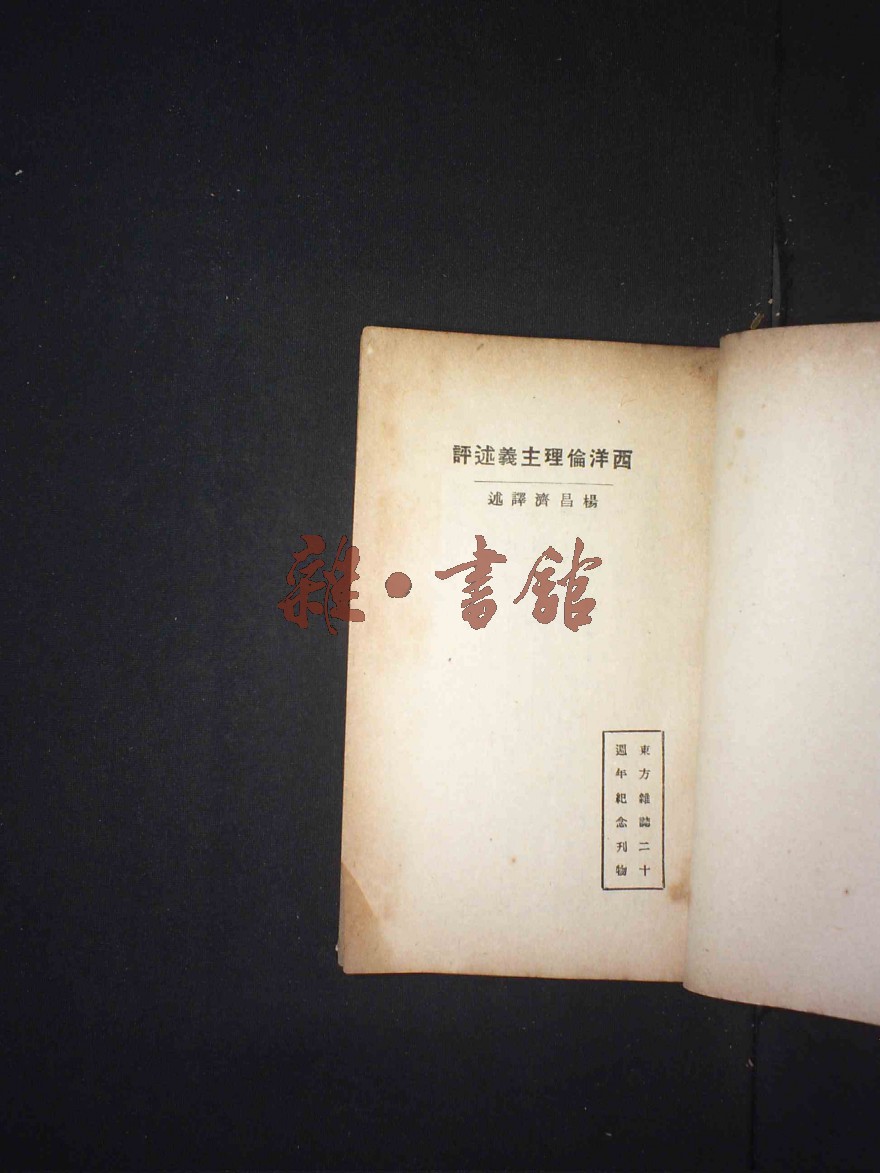 西洋倫理主義述評
楊昌濟譯述
雜·書館
東方雜誌二十
週年紀念刊物